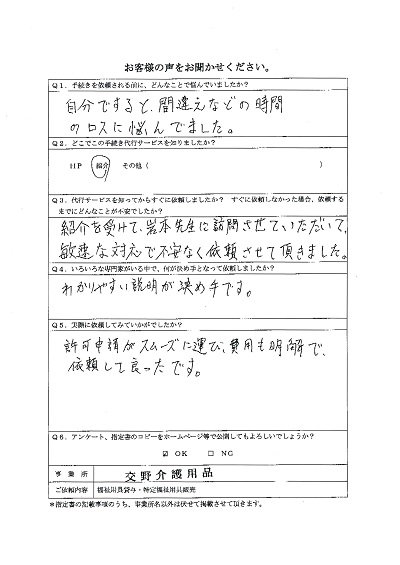 お客様の声をお聞かせください。
Q1．手続きを依頼される前に、どんなことで悩んでいましたか？
自分ですると、間違えなどの時間
のロスに悩んでました。
Q2．どこでこの手続き代行サービスを知りましたか？
HP　紹介　その他（　　　　　）
Q3．代行サービスを知ってからすぐに依頼しましたか？　すぐに依頼しなかった場合、依頼する
までにどんなことが不安でしたか？
紹介を受けて、岩本先生に訪問させていただいて、
敏速な対応で不安なく依頼させて頂きました。
Q4．いろいろな専門家がいる中で、何が決め手となって依頼しましたか？
わかりやすい説明が決め手です。
Q5．実際に依頼してみていかがでしたか？
許可申請がスムーズに運び、費用も明解で、
依頼して良ったです。
Q6．アンケート、指定書のコピーをホームページ等で公開してもよろしいでしょうか？
☑ OK　□ NG
事業所　交野介護用品
ご依頼内容　福祉用具貸与・特定福祉用具販売
＊指定書の記載事項のうち、事業所名以外は伏せて掲載させて頂きます。